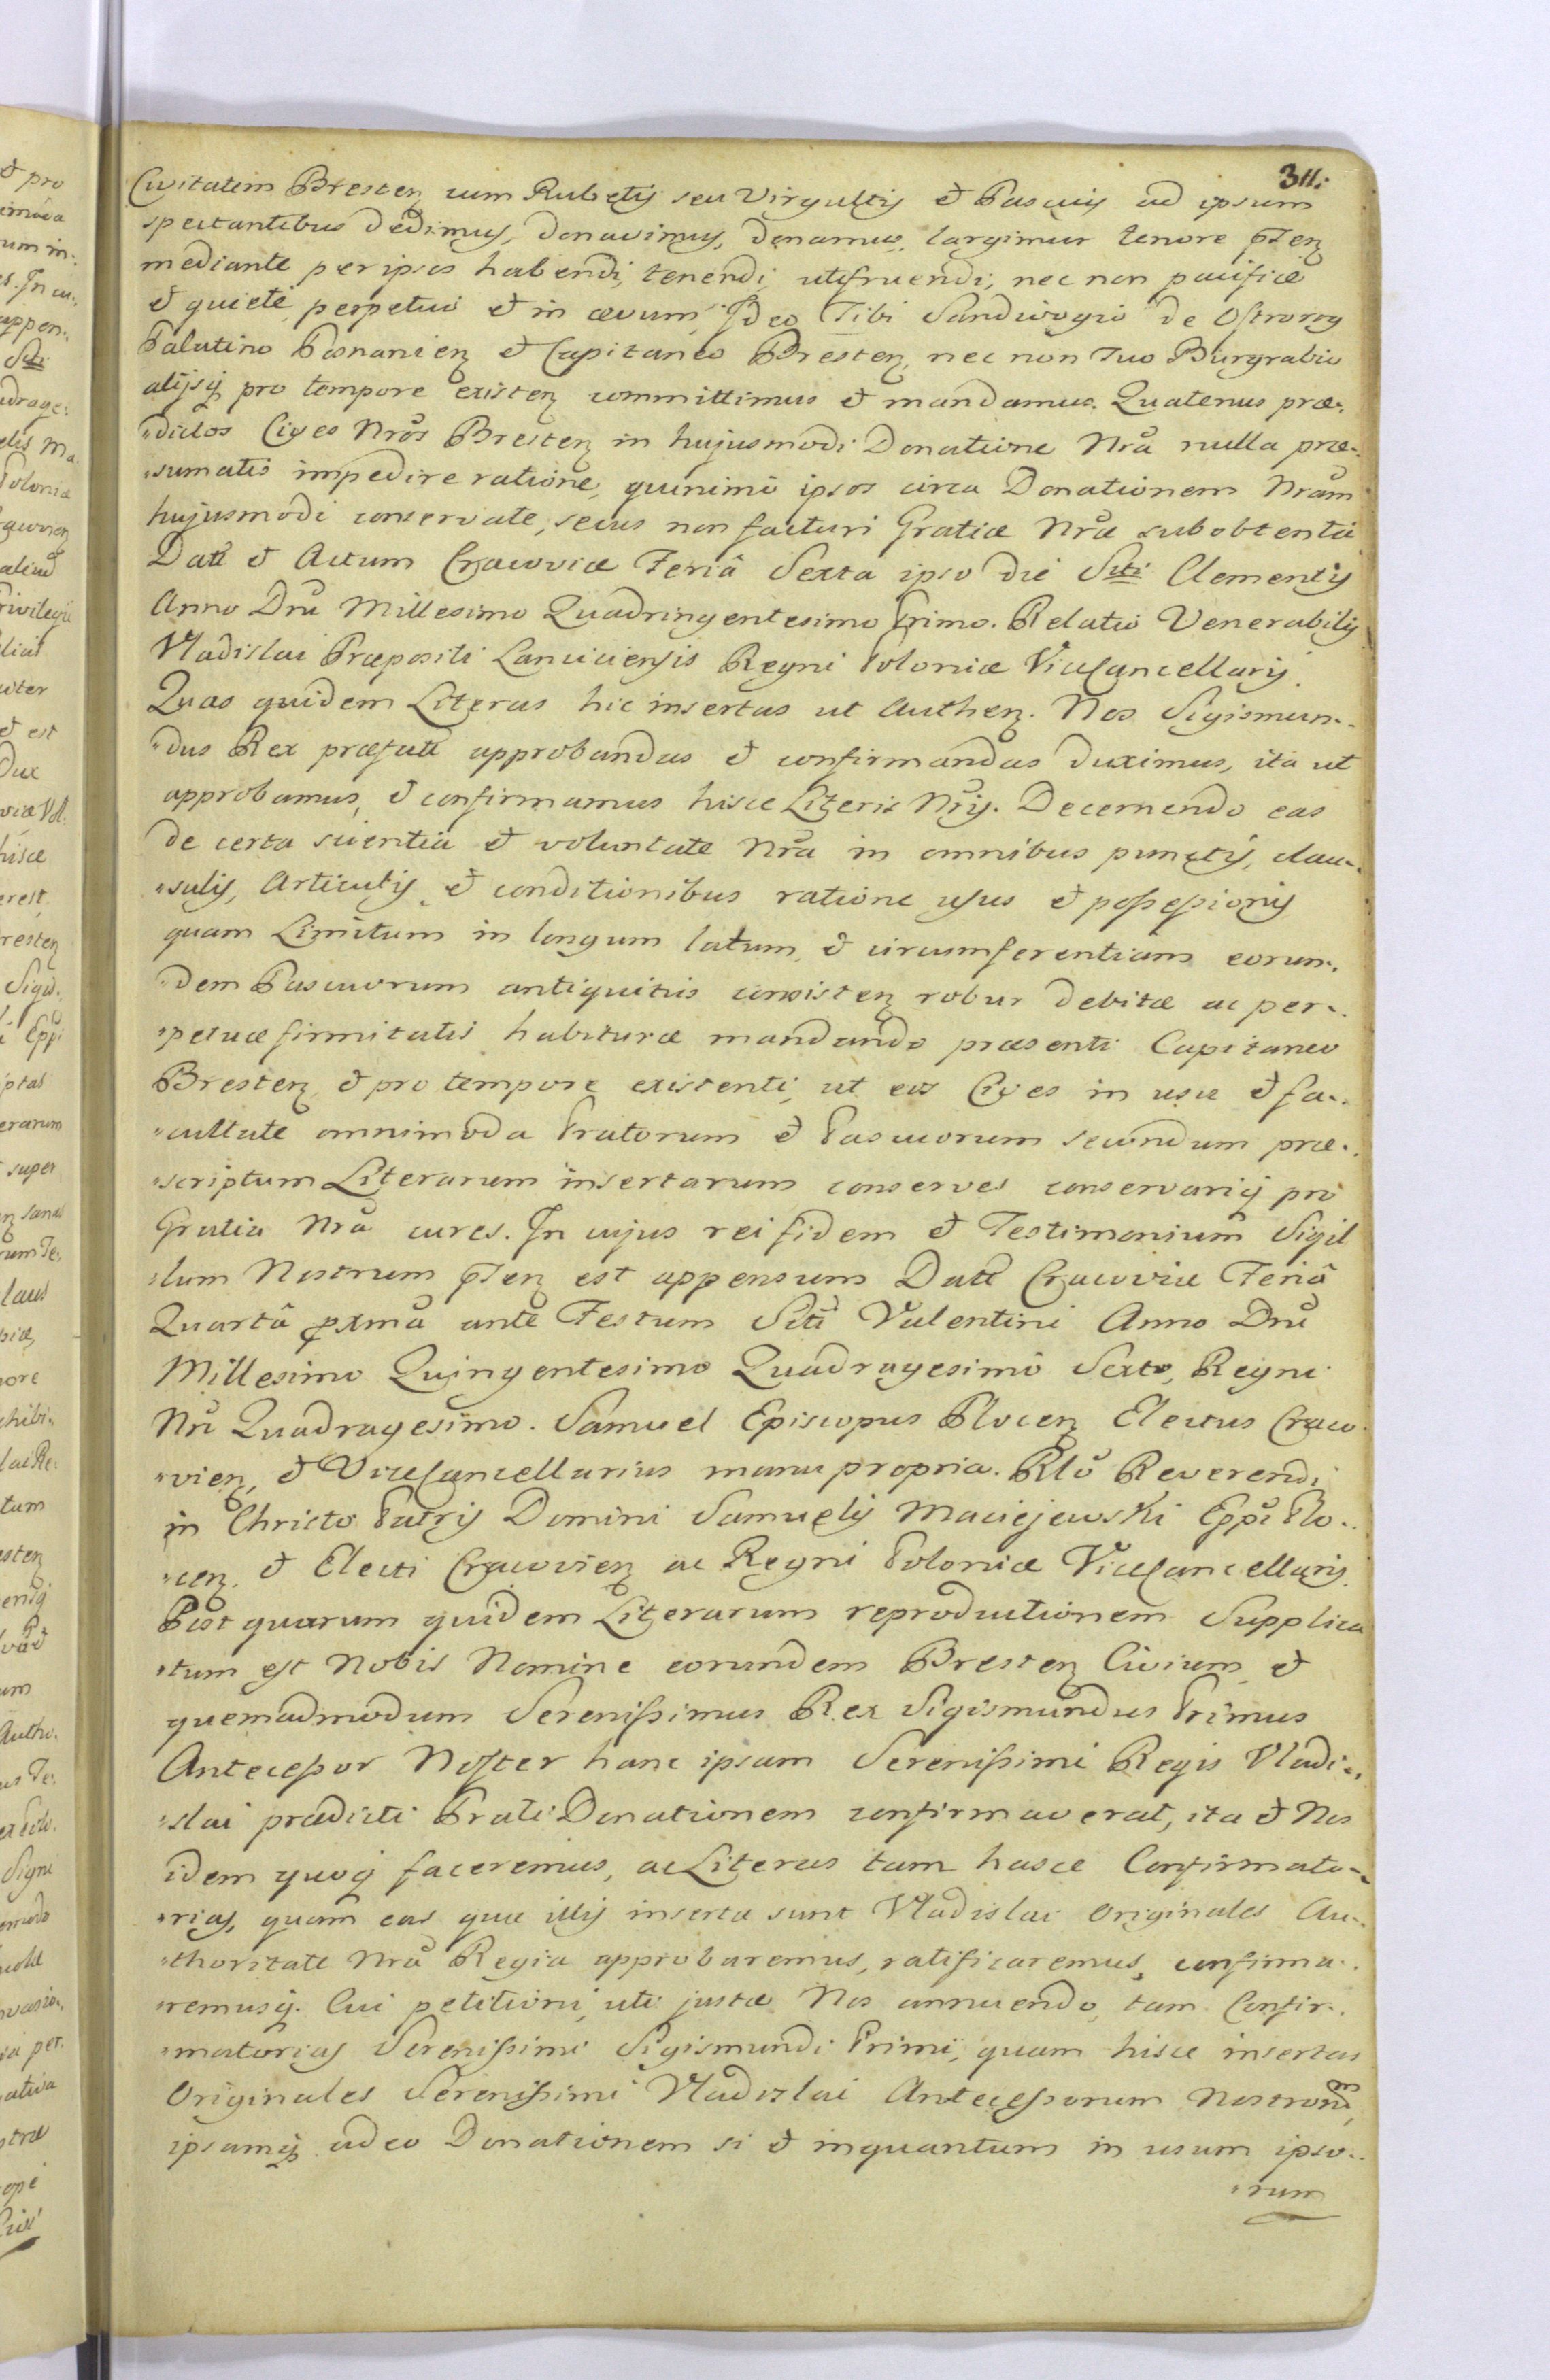 311.
Civitatem Bresteñ cum Rubetis seu Virgultis et Pascuis ad ipsum
spectantibus dedimus, donavimus, donamus, largimur tenore p̃teñ
mediante per ipsos habendi, tenendi, utifruendi, nec non pacificè
et quietè, perpetuò et in ævum, Ideo Tibi Sandivogio de Ostrorog
Palatino Posnanień et Capitaneo Bresteñ, nec non Tuo Burgrabio
alijsq; pro tempore existeñ committimus et mandamus. Quatenus præ-
dictos Cives Nrõs Bresteñ in hujusmodi Donatione Nrã nulla præ-
sumatis impedire ratione, quinimò ipsos circa Donationem Nrãm
hujusmodi conservate, secus non facturi Gratiæ Nræ sub obtentu
Datt et Actum Cracoviæ Feriâ Sexta ipso die Sti Clementis
Anno Dñi Millesimo Quadringentesimo Primo. Relatio Venerabilis
Vladislai Præpositi Lanciciensis Regni Poloniæ ViceCancellarij.
Quas quidem Literas hic insertas ut Autheñ. Nos Sigismun-
dus Rex præfatt approbandas et confirmandas duximus, ita ut
approbamus, et confirmamus hisce Literis Nrĩs. Decernendo eas
de certa scientia et voluntate Nrã in omnibus punctis, clau-
sulis, Articulis, et conditionibus ratione usus et possessionis
quam Limitum in longum latum, et circumferentiam eorun-
dem Pascuorum antiquitus consisteñ robur debitæ ac per-
petuæ firmitatis habituræ mandando præsenti Capitaneo
Bresteñ et pro tempore existenti, ut eos Cives in usu et fa-
cultate omnimoda Pratorum et Pascuorum secundum præ-
scriptum Literarum insertarum conserves conservariq; pro
Gratia Nrã cures. In cujus rei fidem et Testimonium Sigil
lum Nostrum p̃teñ est appensum Datt Cracoviæ Feriâ
Quartâ pxmã ante Festum Sti Valentini Anno Dñi
Millesimo Quingentesimo Quadragesimo Sexto, Regni
Nrĩ Quadragesimo. Samuel Episcopus Ploceñ Electus Craco-
vień, et ViceCancellarius manu propria. Rlõ Reverendi
in Christo Patris Domini Samuelis Maciejewski Eppĩ Plo-
ceñ. et Electi Cracovień ac Regni Poloniæ ViceCancellarij.
Post quarum quidem Literarum reproductionem Supplica
tum est Nobis Nomine eorundem Bresteñ Civium, et
quemadmodum Serenissimus Rex Sigismundus Primus
Antecessor Noster hanc ipsam Serenissimi Regis Vladi-
slai prædicti Prati Donationem confirmaverat, ita et Nos
idem quoq; faceremus, ac Literas tam hasce Confirmato-
rias, quam eas quæ illis inserta sunt Vladislai Originales Au-
thoritate Nrã Regia approbaremus, ratificaremus, confirma-
remusq;. Cui petitioni, uti justæ Nos annuendo, tam Confir-
matorias Serenissimi Sigismundi Primi, quam hisce insertas
Originales Serenissimi Vladislai Antecessorum Nostrorum,
ipsamq; adeo Donationem si et inquantum in usum ipso-
rum